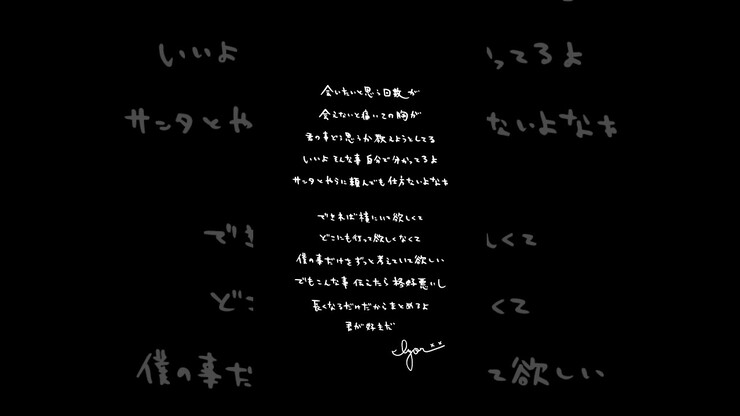 会いたいと思う回数が
会えないと痛いこの胸が
君の事どう思うか教えようとしてる
いいよ そんな事 自分で分かってるよ
サンタとやらに頼んでも 仕方ないよなぁ
できれば横にいて欲しくて
どこにも行って欲しくなくて
僕の事だけをずっと考えていて欲しい
でもこんな事 伝えたら 格好悪いし
長くなるだけだからまとめるよ
君が好きだ